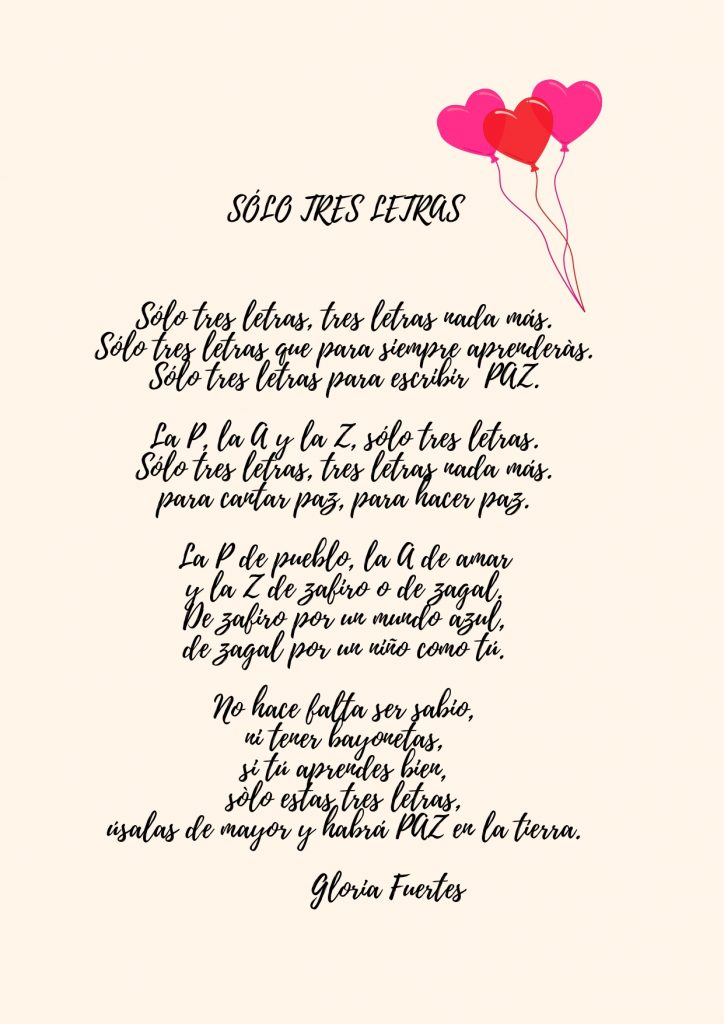 SÓLO TRES LETRAS
Sólo tres letras, tres letras nada más.
Sólo tres letras que para siempre aprenderàs.
Sólo tres letras para escribir PAZ.
La P, la A y la Z, sólo tres letras.
Sólo tres letras, tres letras nada más.
para cantar paz, para hacer paz.
La P de pueblo, la A de amar
y la Z de zafiro o de zagal.
De zafiro por un mundo azul,
de zagal por un niño como tú.
No hace falta ser sabio,
ni tener bayonetas,
si tú aprendes bien,
sòlo estas tres letras,
úsalas de mayor y habrá PAZ en la tierra.
Gloria Fuertes